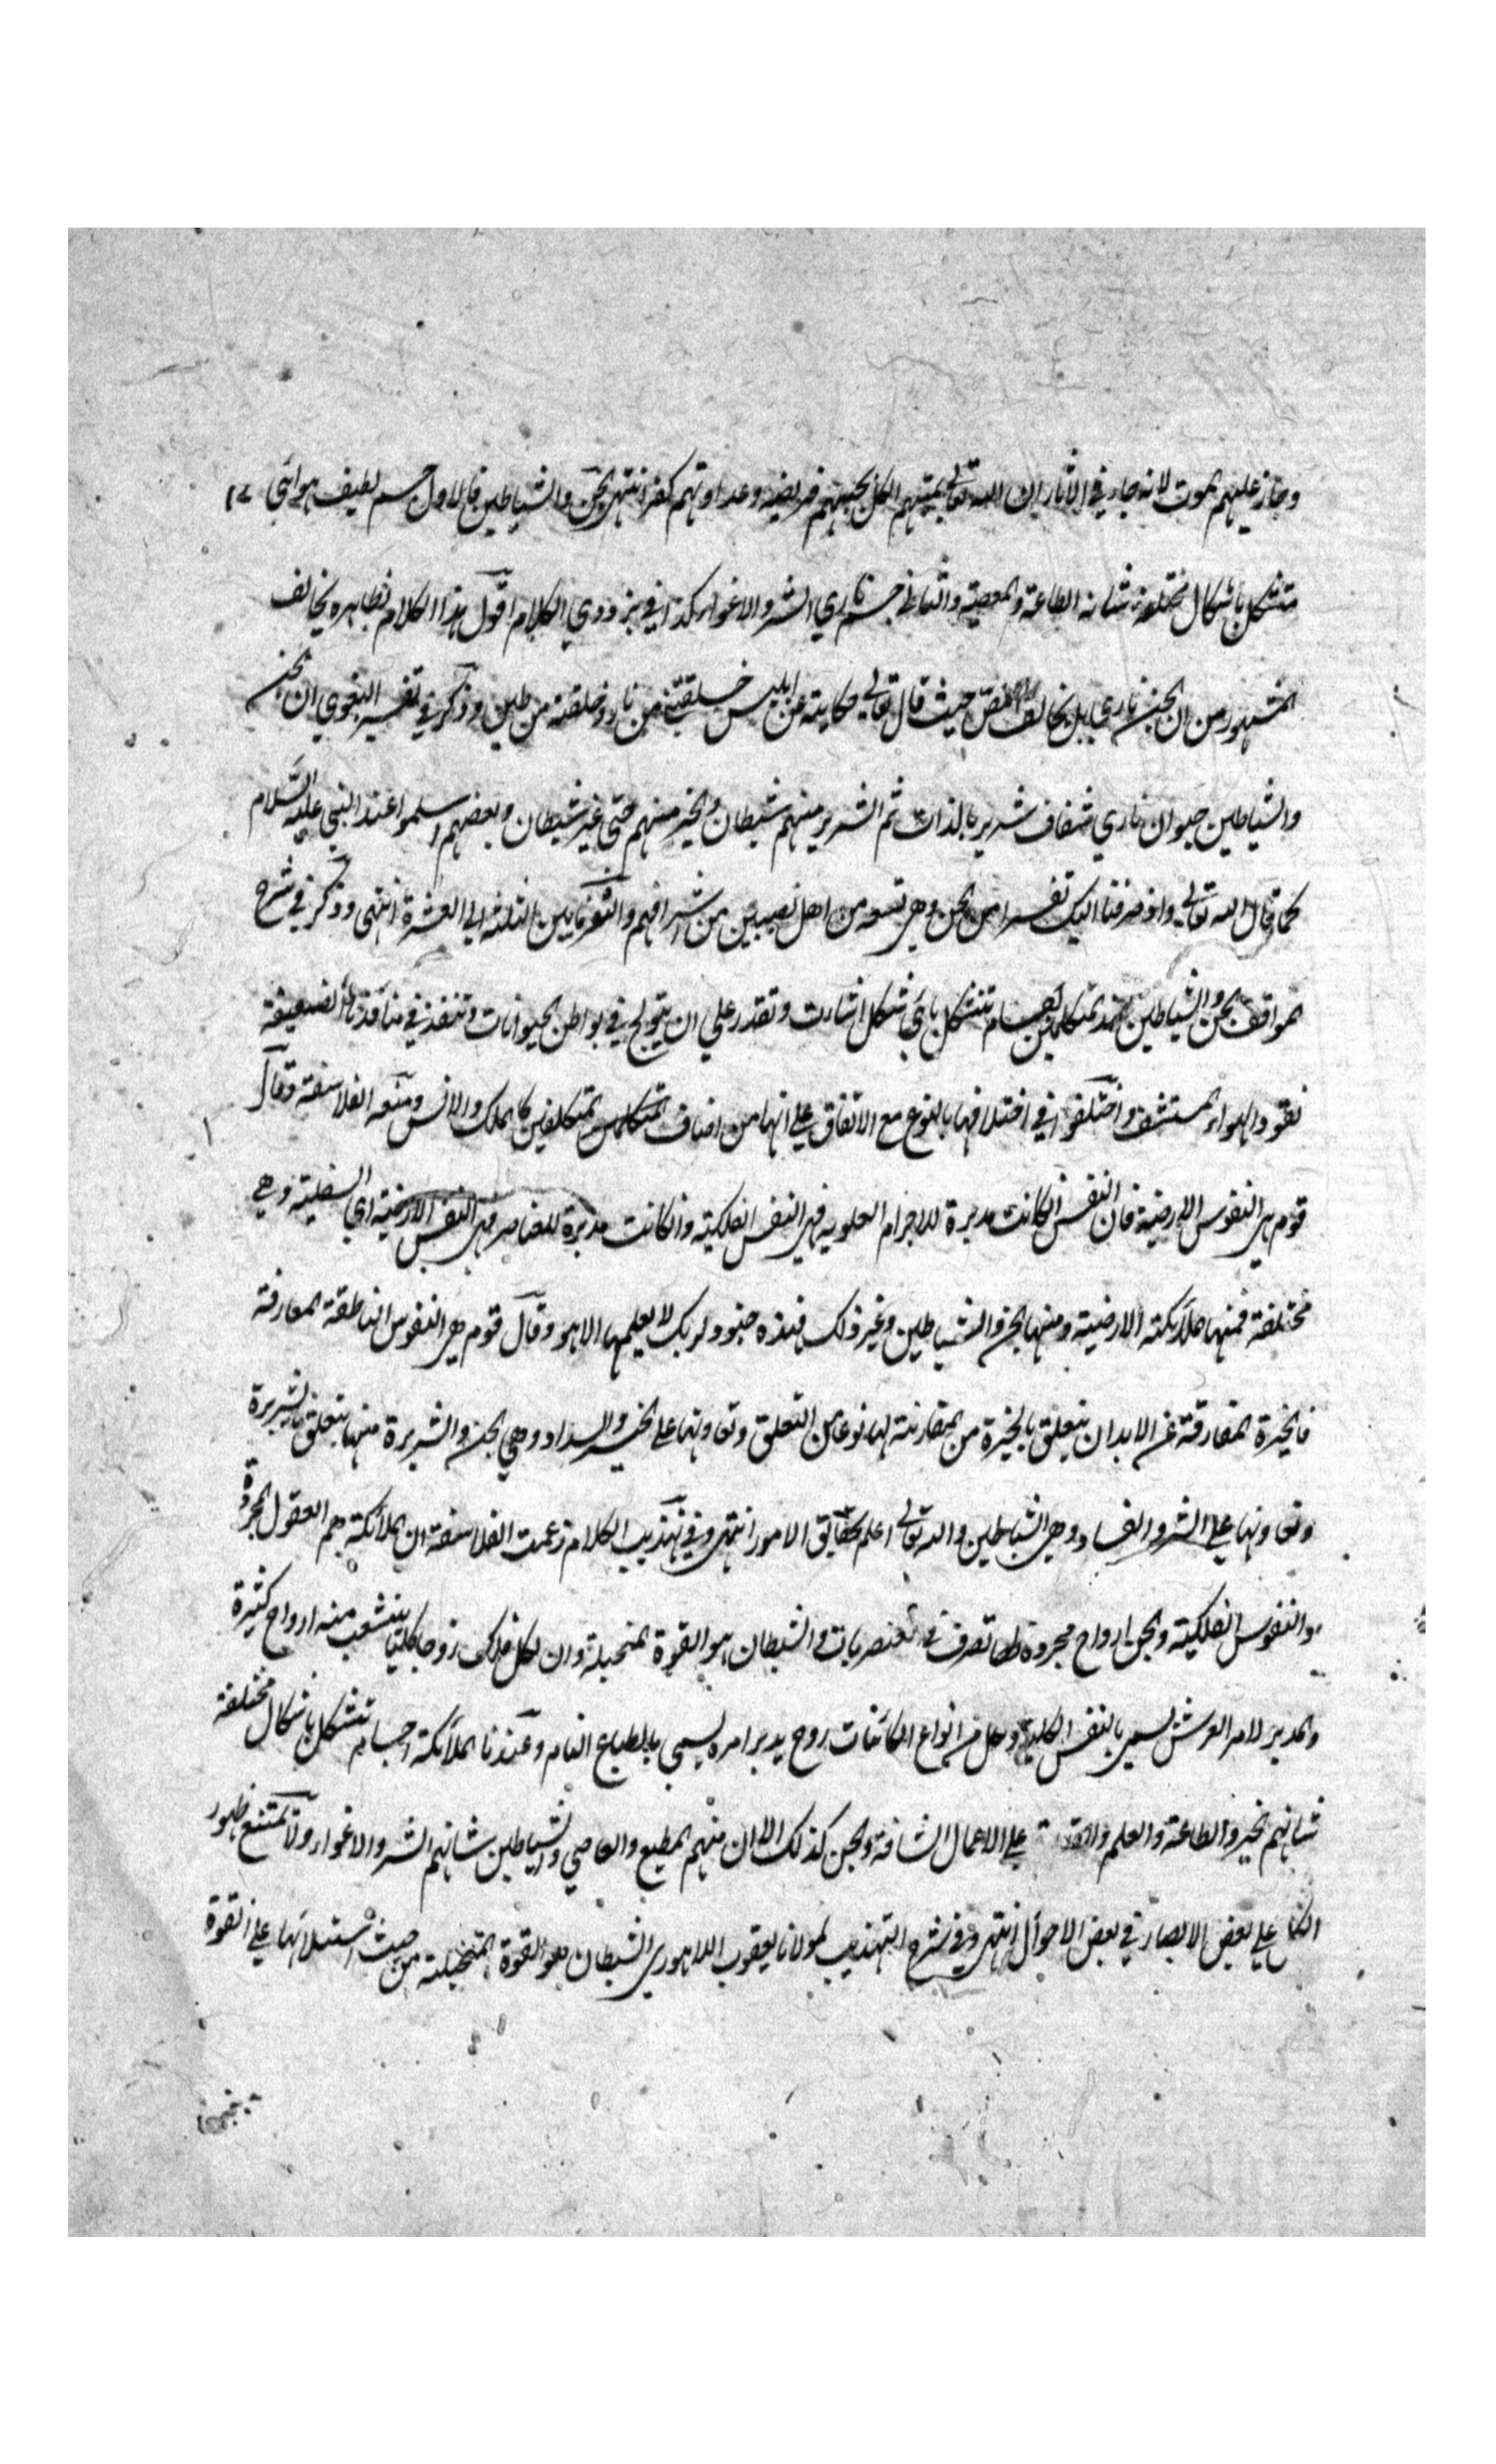 وجاز عليهم الموت لانه جاء في الآثار ان الله تعالى يميتهم الكل محبتهم فريضة وعداوتهم كفر انتهى الجن والشياطين فالاول جسم لطيف هوائي
متشكل باشكال مختلفة شانه الطاعة والمعصية والثاني جسم ناري الشر والاغواء كذا في بزدوي الكلام اقول هذا الكلام بظاهره يخالف
المشهور من ان الجن ناري بل يخالف النص حيث قال تعالى حكاية عن ابليس خلقتني من نار وخلقته من طين وذكر في تفسير البغوي ان الجن
والشياطين حيوان ناري شفاف شرير بالذات ثم الشرير منهم شيطان والخير منهم جني غير شيطان وبعضهم اسلموا عند النبي عليه السلام
كما قال الله تعالى واذ صرفنا اليك نفرا من الجن وهي تسعة من اهل نصيبين من اشرافهم والنفر ما بين الثلثة الى العشرة انتهى وذكر في شرح
المواقف الجن والشياطين عند المتكلمين اجسام تتشكل باي شكل شاءت وتقدر على ان يتولج في بواطن الحيوانات وتنفذ في منافذها الضيقة
نفوذ الهواء المستنشق واختلفوا في اختلافها بالنوع مع الاتفاق على انها من اصناف المتكلمين المتكلفين كالملك والانس ومنعه الفلاسفة وقال
قوم هي النفوس الارضية فان النفس ان كانت مدبرة للاجرام العلوية فهي النفس الفلكية وان كانت مدبرة للعناصر فهي النفس الارضية اي السفلية وهي
مختلفة فمنها الملائكة الارضية ومنها الجن والشياطين وغير ذلك فهذه جنود لربك لا يعلمها الا هو وقال قوم هي النفوس الناطقة المفارقة
فالخيرة المفارقة عن الابدان يتعلق بالخيرة من المقارنة لها نوعا من التعلق وتعاونها على الخير والسداد وهي الجن والشريرة منها يتعلق بالشريرة
وتعاونها على الشر والفساد وهي الشياطين والله تعالى اعلم بحقايق الامور انتهى وفي تهذيب الكلام زعمت الفلاسفة ان الملائكة هم العقول المجردة
والنفوس الفلكية والجن ارواح مجردة لها تصرف في العنصريات والشيطان هو القوة المتخيلة وان لكل فلك روحا كليا ينشعب منه ارواح كثيرة
والمدبر لامر العرش يسمى بالنفس الكلية ولكل من انواع الكائنات روح يدبر امره يسمى بالطباع التام وعندنا الملائكة اجسام تتشكل باشكال مختلفة
شانهم الخير والطاعة والعلم والقدرة على الاعمال الشاقة والجن كذلك الا ان منهم المطيع والعاصي والشياطين شانهم الشر والاغواء ولا يمتنع ظهور
الكل على بعض الابصار في بعض الاحوال انتهى وفي شرح التهذيب لمولانا يعقوب اللاهوري الشيطان هو القوة المتخيلة من حيث استيلائها على القوة